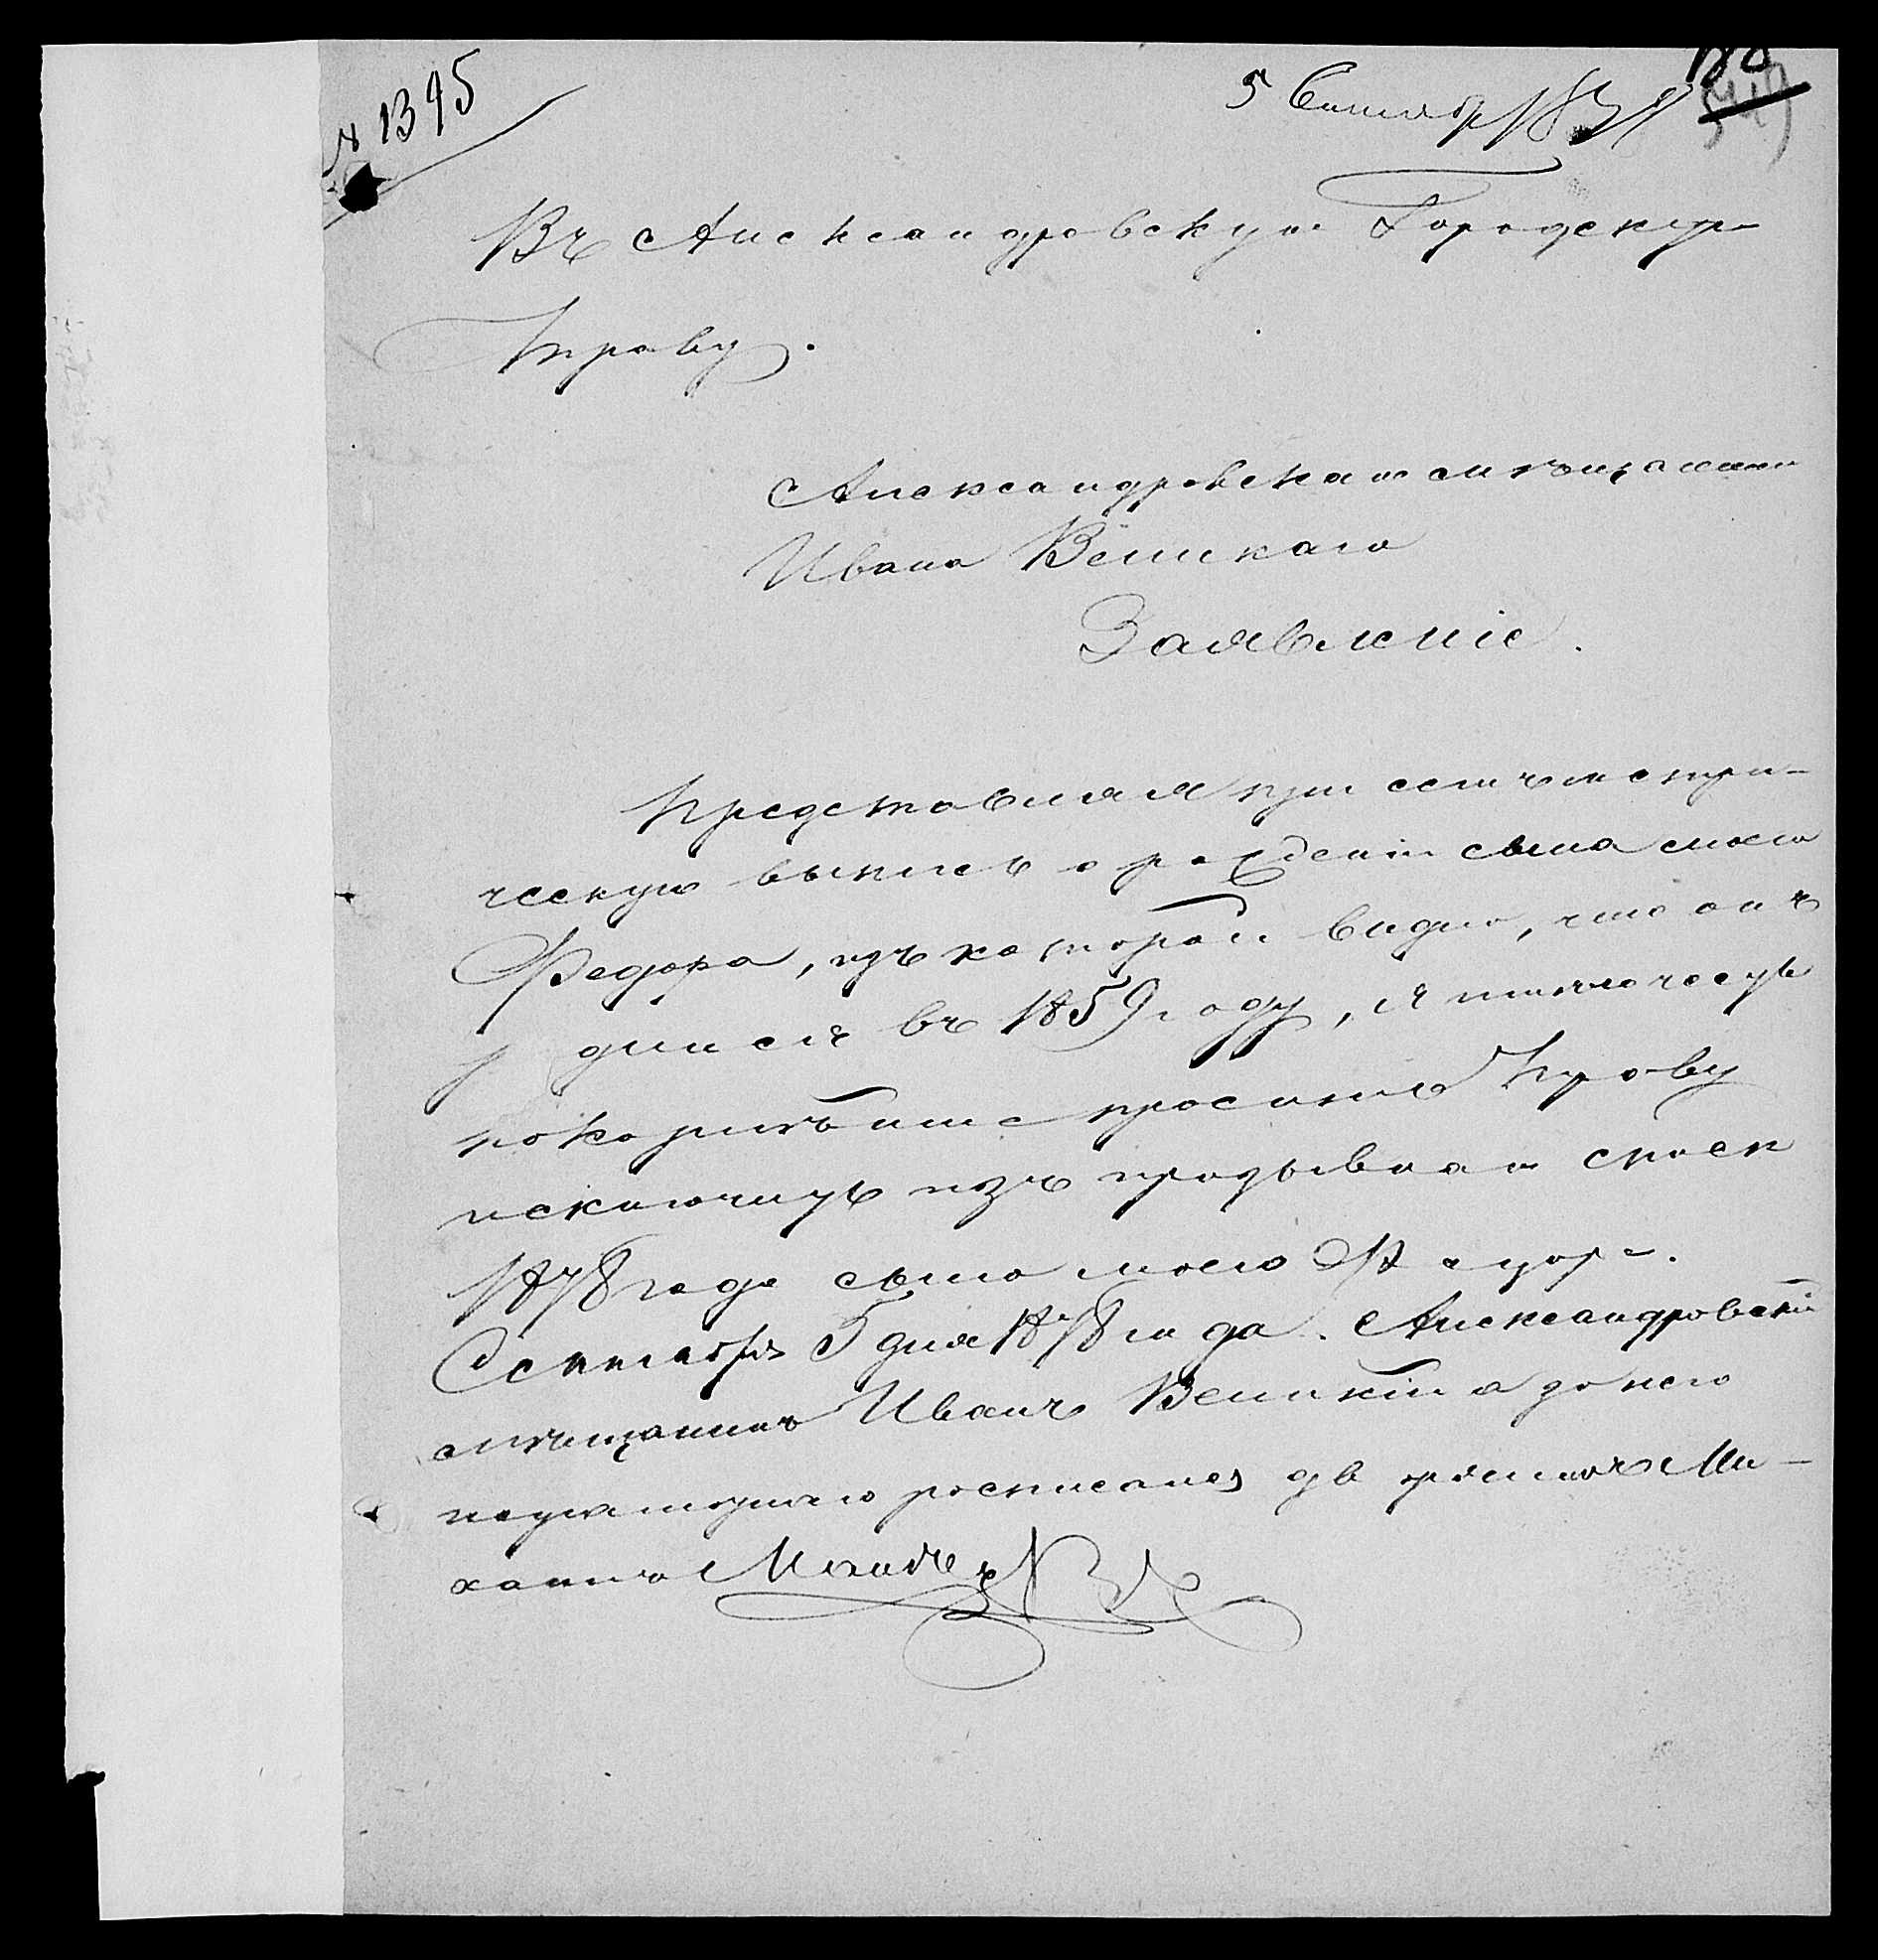 № 1395
5 Сентября 1878
180
519
Въ Александровскую Городскую
Управу.
Александровскаго мѣщанина
Ивана Великаго
Заявленіе.
Представляя при семъ метри-
ческую выпись о рожденіи сына моего
Федора, изъ которой видно, что онъ
родился въ 1859 году, я имѣю честь
покорнѣйше просить Управу
исключить изъ призывнаго списк
1878 года сына моего Федора.
Сентября 5 дня 1878 года. Александровскій
мѣщанинъ Иванъ Великій а за него
неграмотнаго росписался
Ми-
хаилъ